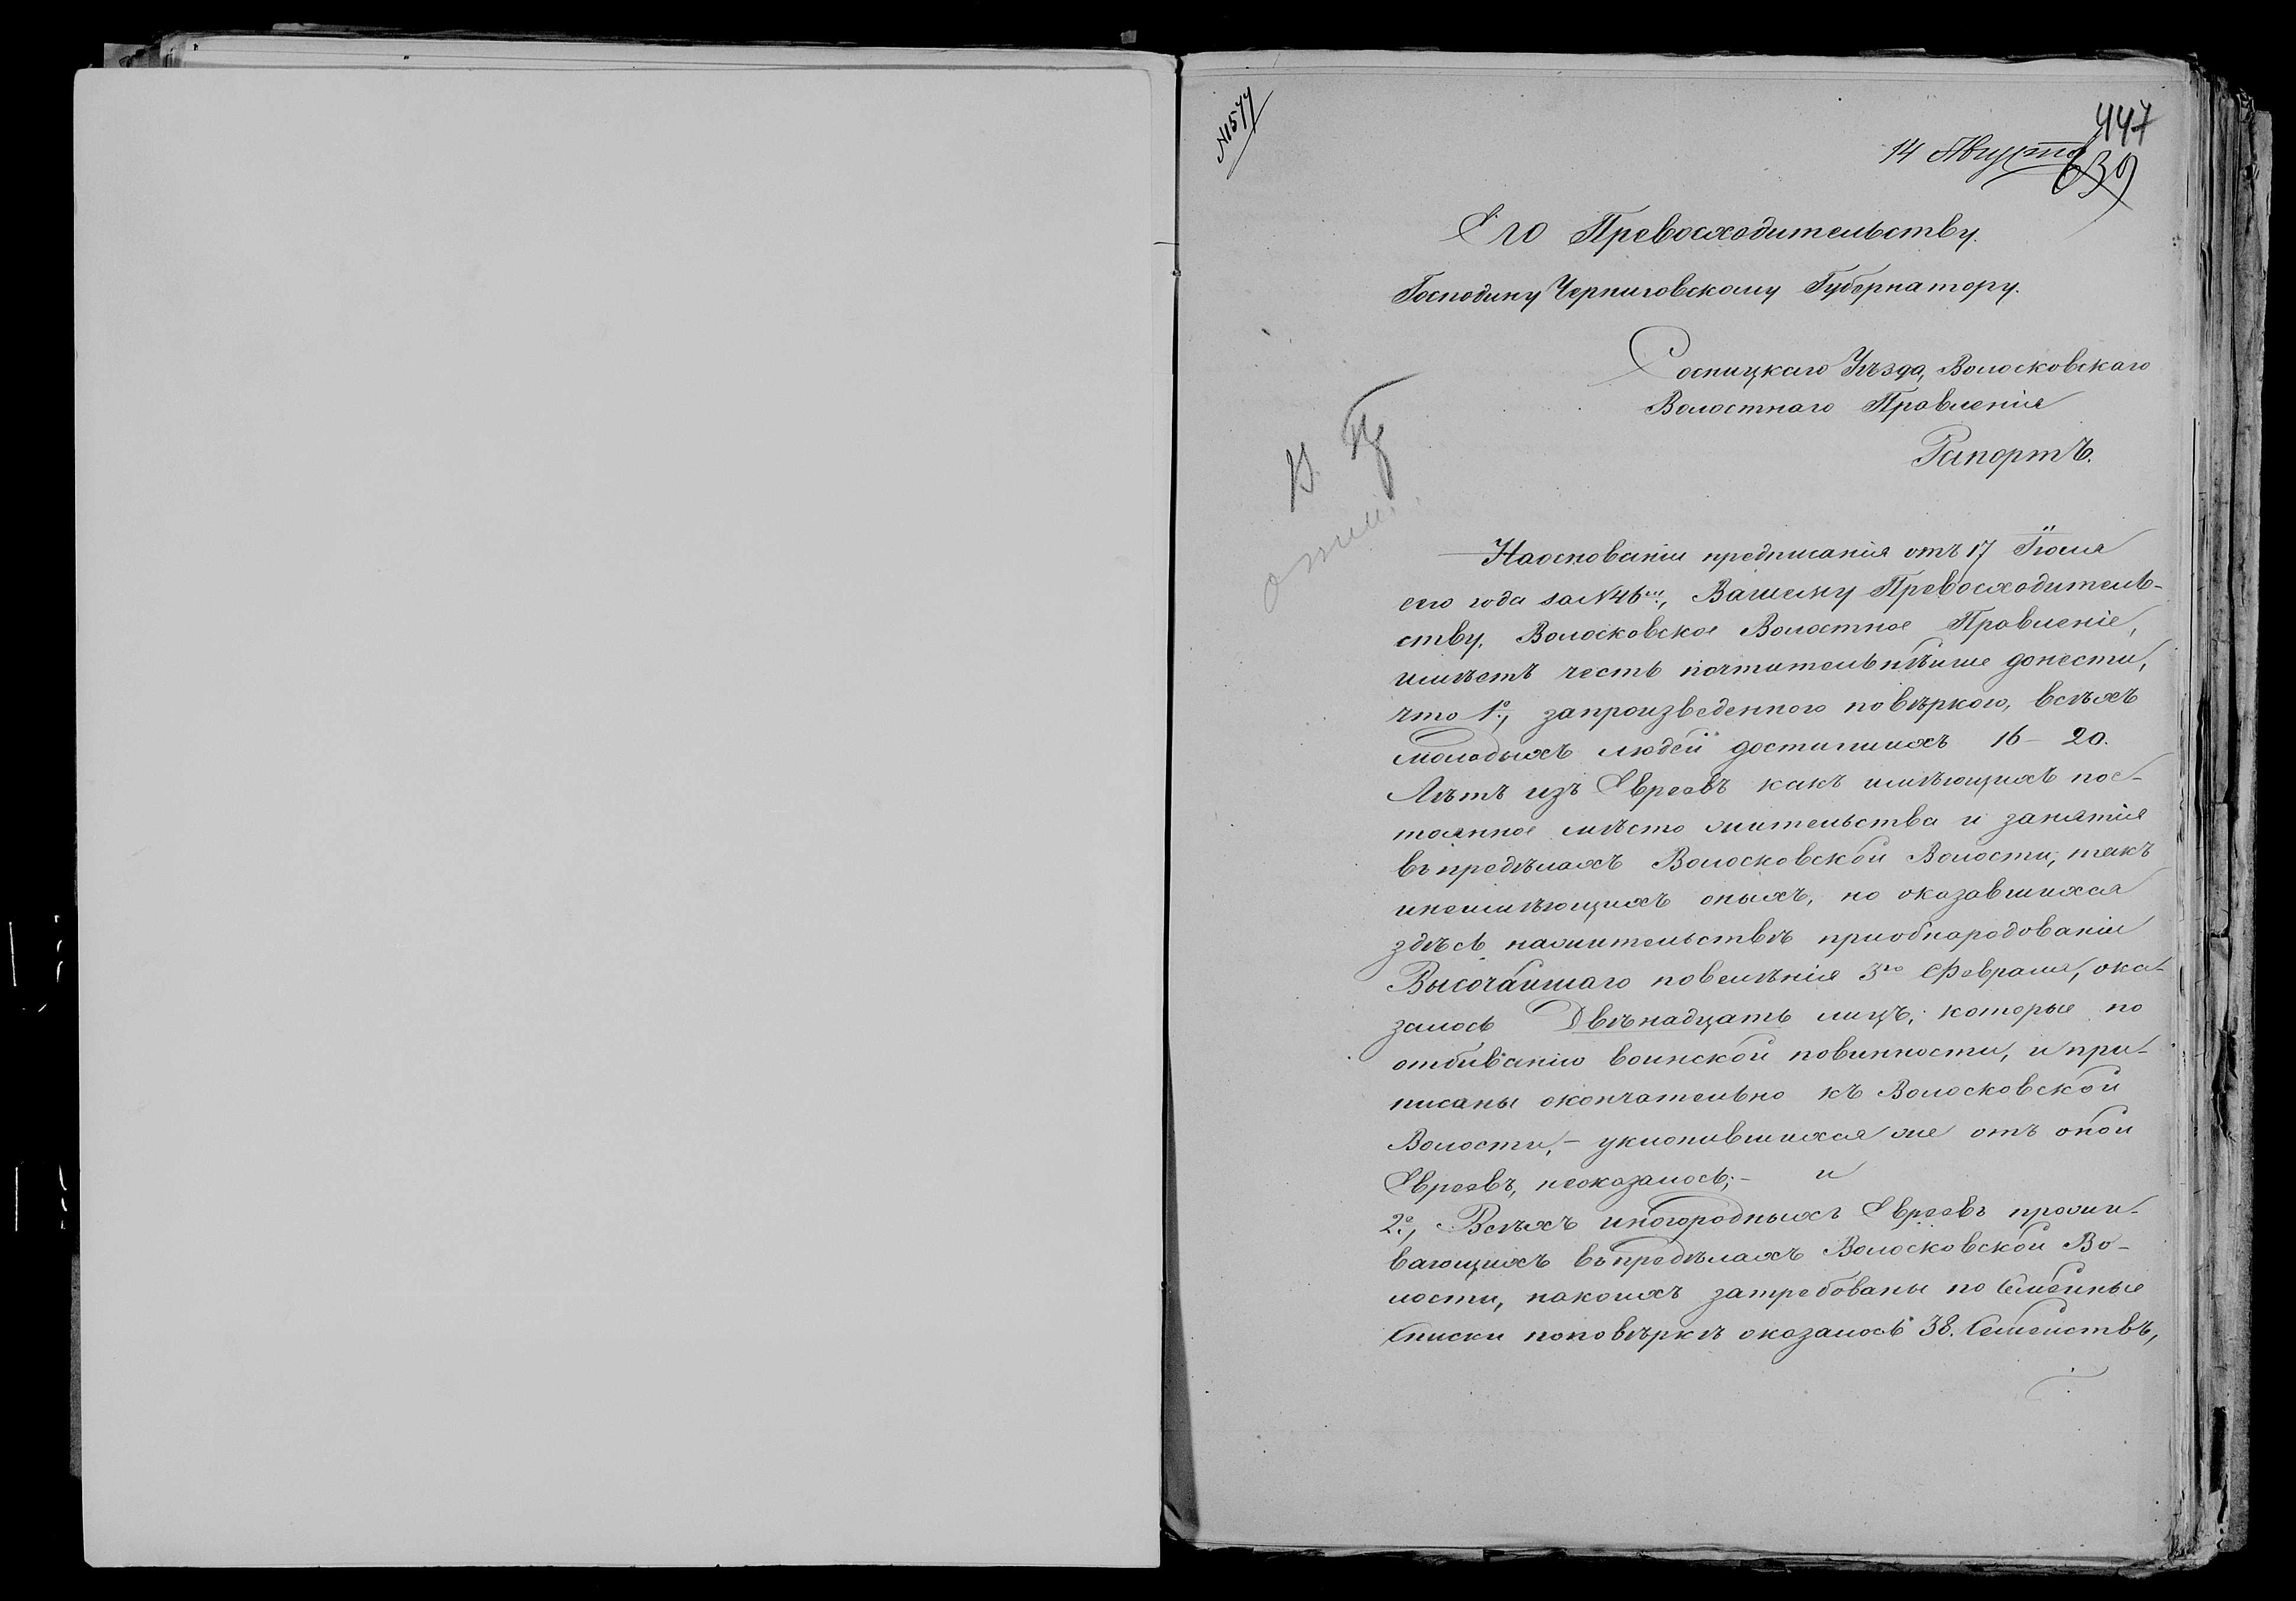 №1577
447
14 Августа
639
Его Превосходительству
Господину Черниговскому Губернатору.
Сосницкаго Уѣзда, Волосковскаго
Волостнаго Правленія
Рапортъ.
Наоснованіи предписанія отъ 17 Іюля
сего года за №46, Вашему Превосходитель-
ству, Волосковское Волостное Правленіе,
имѣетъ честь почтительнѣйше донести,
что 1º, запроизведенного повѣркою, всѣхъ
молодыхъ людей достигшихъ 16-20.
Лѣтъ изъ Евреевъ какъ имѣющихъ пос-
тоянное мѣсто жительства и занятія
въпредѣлахъ Волосковской Волости, такъ
инеимѣющихъ оныхъ, но оказавшихся
здѣсь нажительствѣ приобнародованіи
Высочайшаго повелѣнія 3го Февраля, ока-
залось Двѣнадцать лицъ, которые по
отбиванію воинской повинности, и при-
писаны окончательно къ Волосковской
Волости,- уклонившихся же отъ оной
Евреевъ, неоказалось;- и
2º, Всѣхъ иногородныхъ Евреевъ прожи-
вающихъ въпредѣлахъ Волосковской Во-
лости, накоихъ затребованы по Семейные
Списки поповѣркѣ оказалось 38. Семействъ,